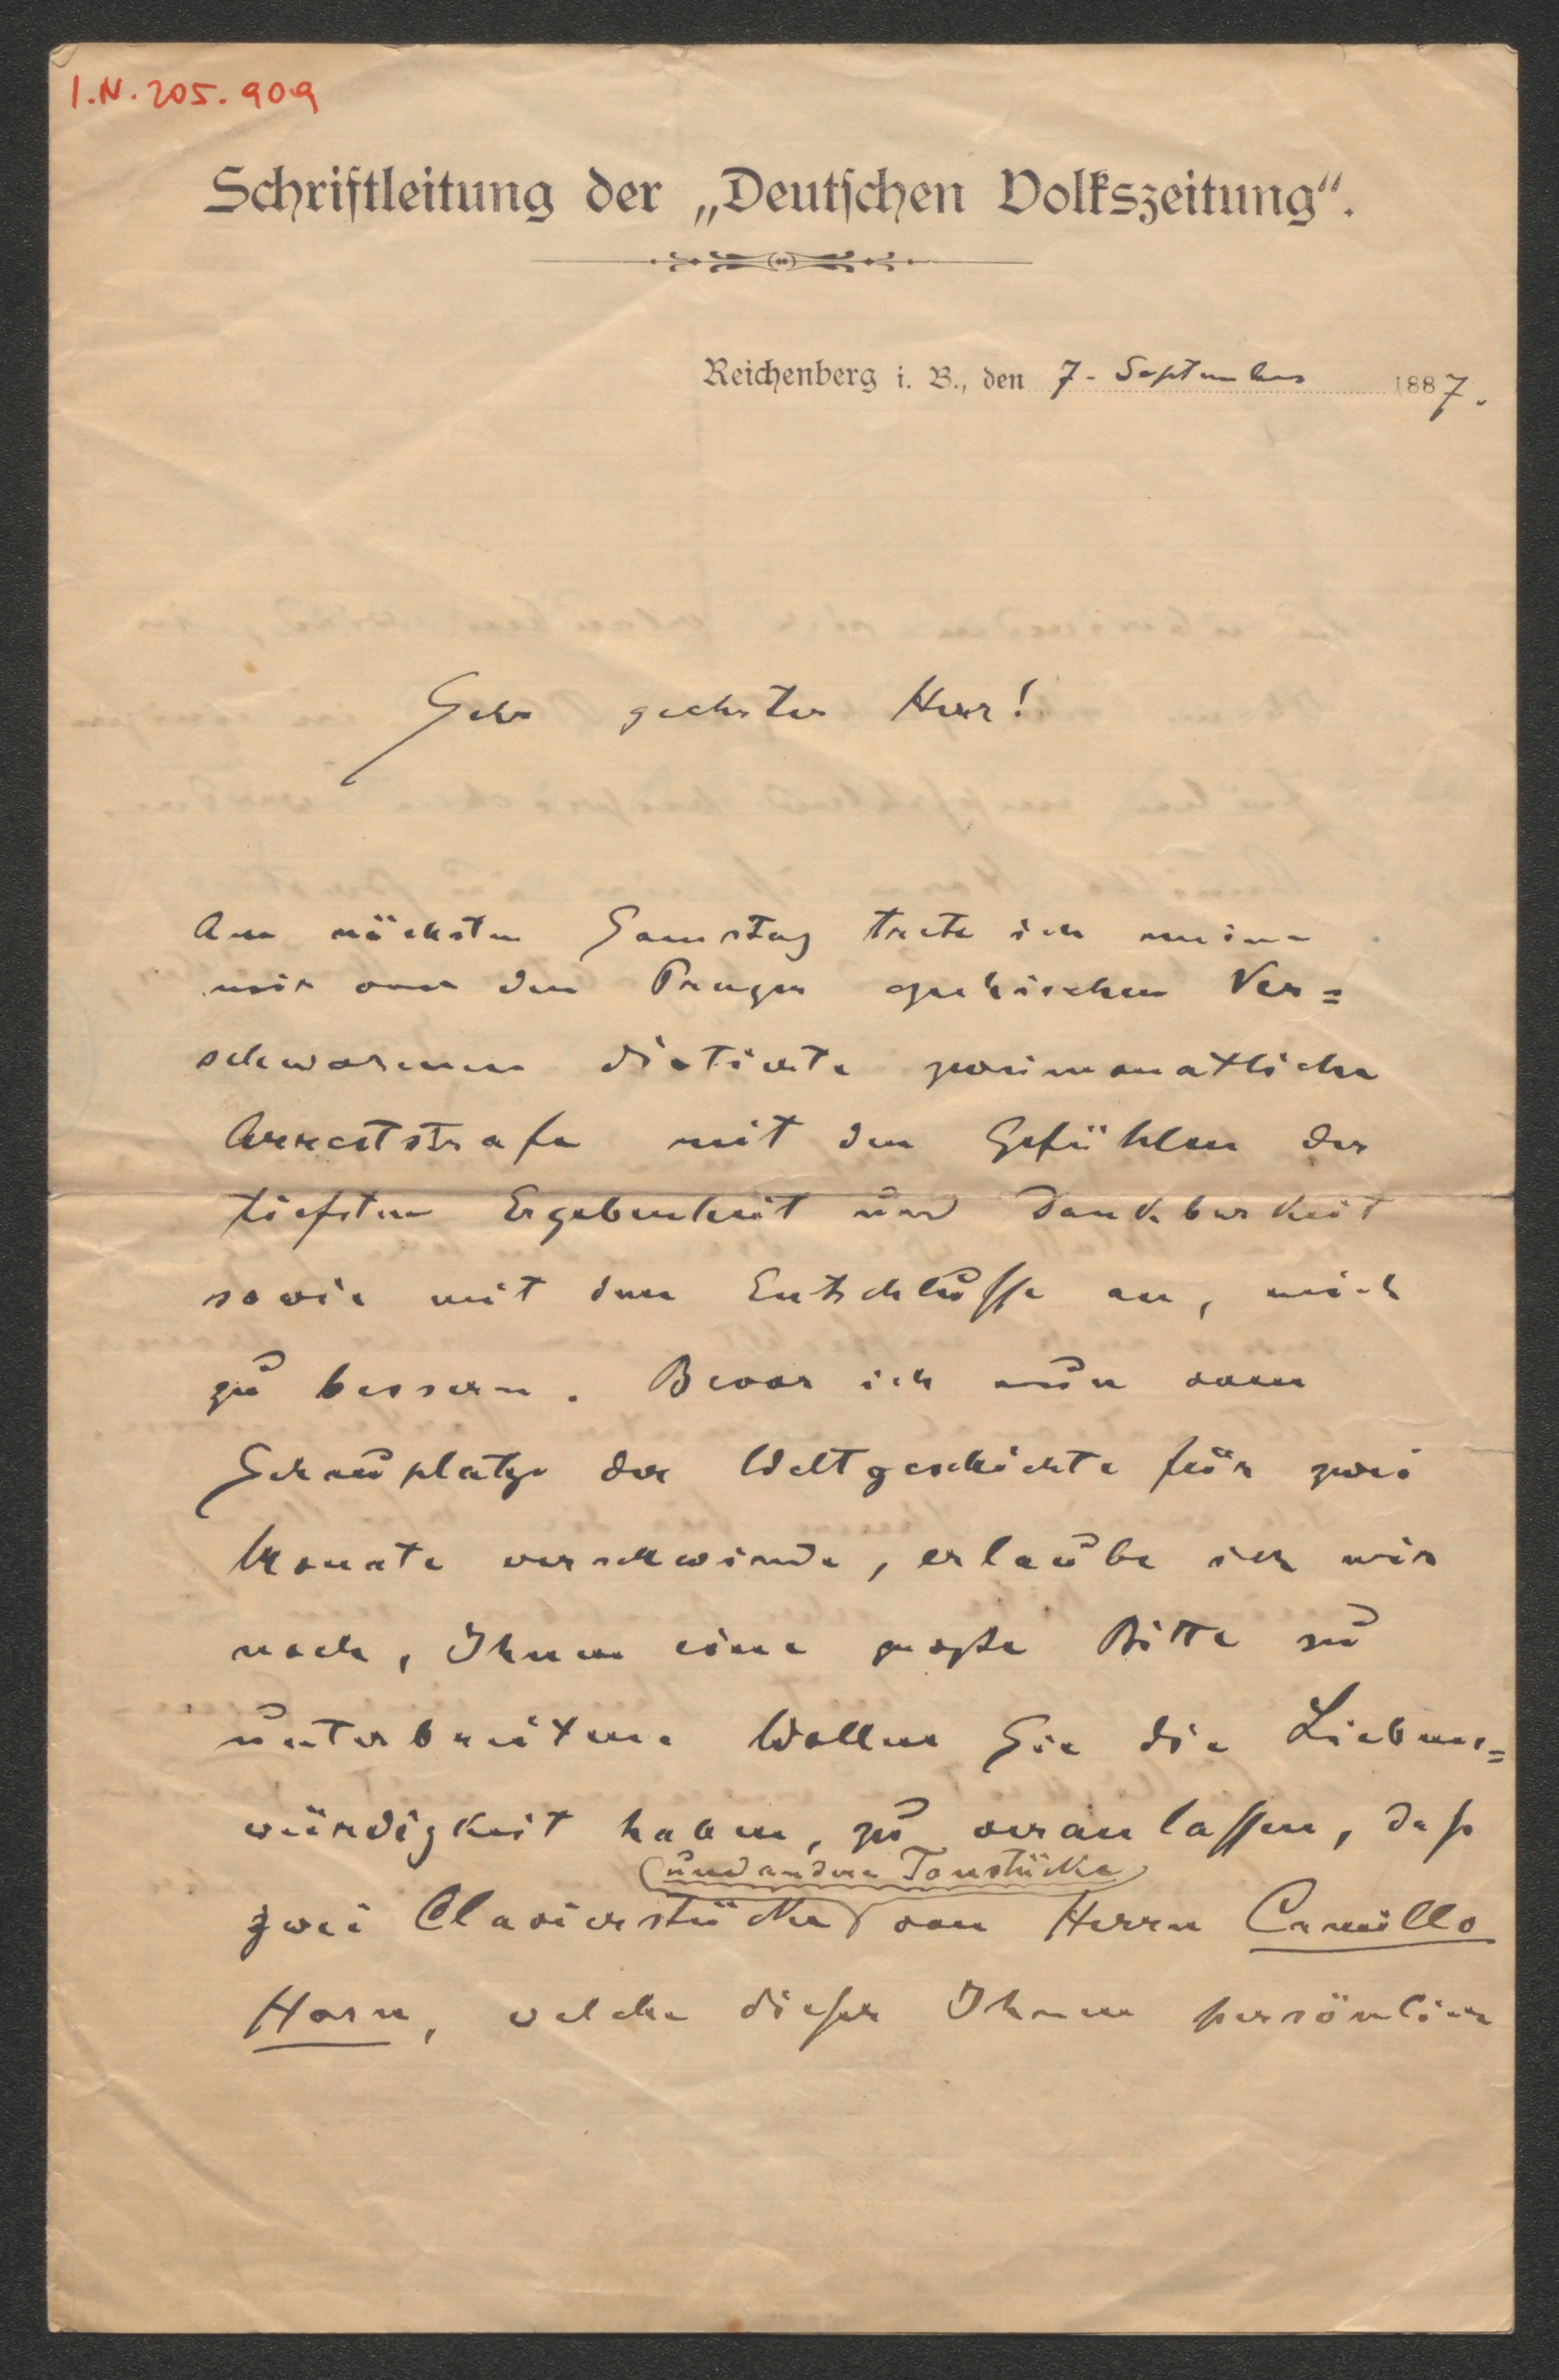 I.N. 205.909
Schriftleitung der „Deutschen Volkszeitung“.
Reichenberg i. B., den 7. September 1887.
Sehr geehrter Herr!
Am nächsten Samstag trete ich meine
mir von den Prager czechischen Ge=
schworenen dictirte zweimonatliche
Arreststrafe mit den Gefühlen der
tiefsten Ergebenheit und Dankbarkeit
sowie mit dem Entschlusse an, mich
zu bessern. Bevor ich nun vom
Schauplatze der Weltgeschichte für zwei
Monate verschwinde, erlaube ich mir
noch, Ihnen eine große Bitte zu
unterbreiten. Wollen Sie die Liebens=
würdigkeit haben, zu veranlassen, daß
(und andere Tonstücke)
zwei Clavierstücke von Herrn Camillo
Horn, welche dieser Ihnen persönlich